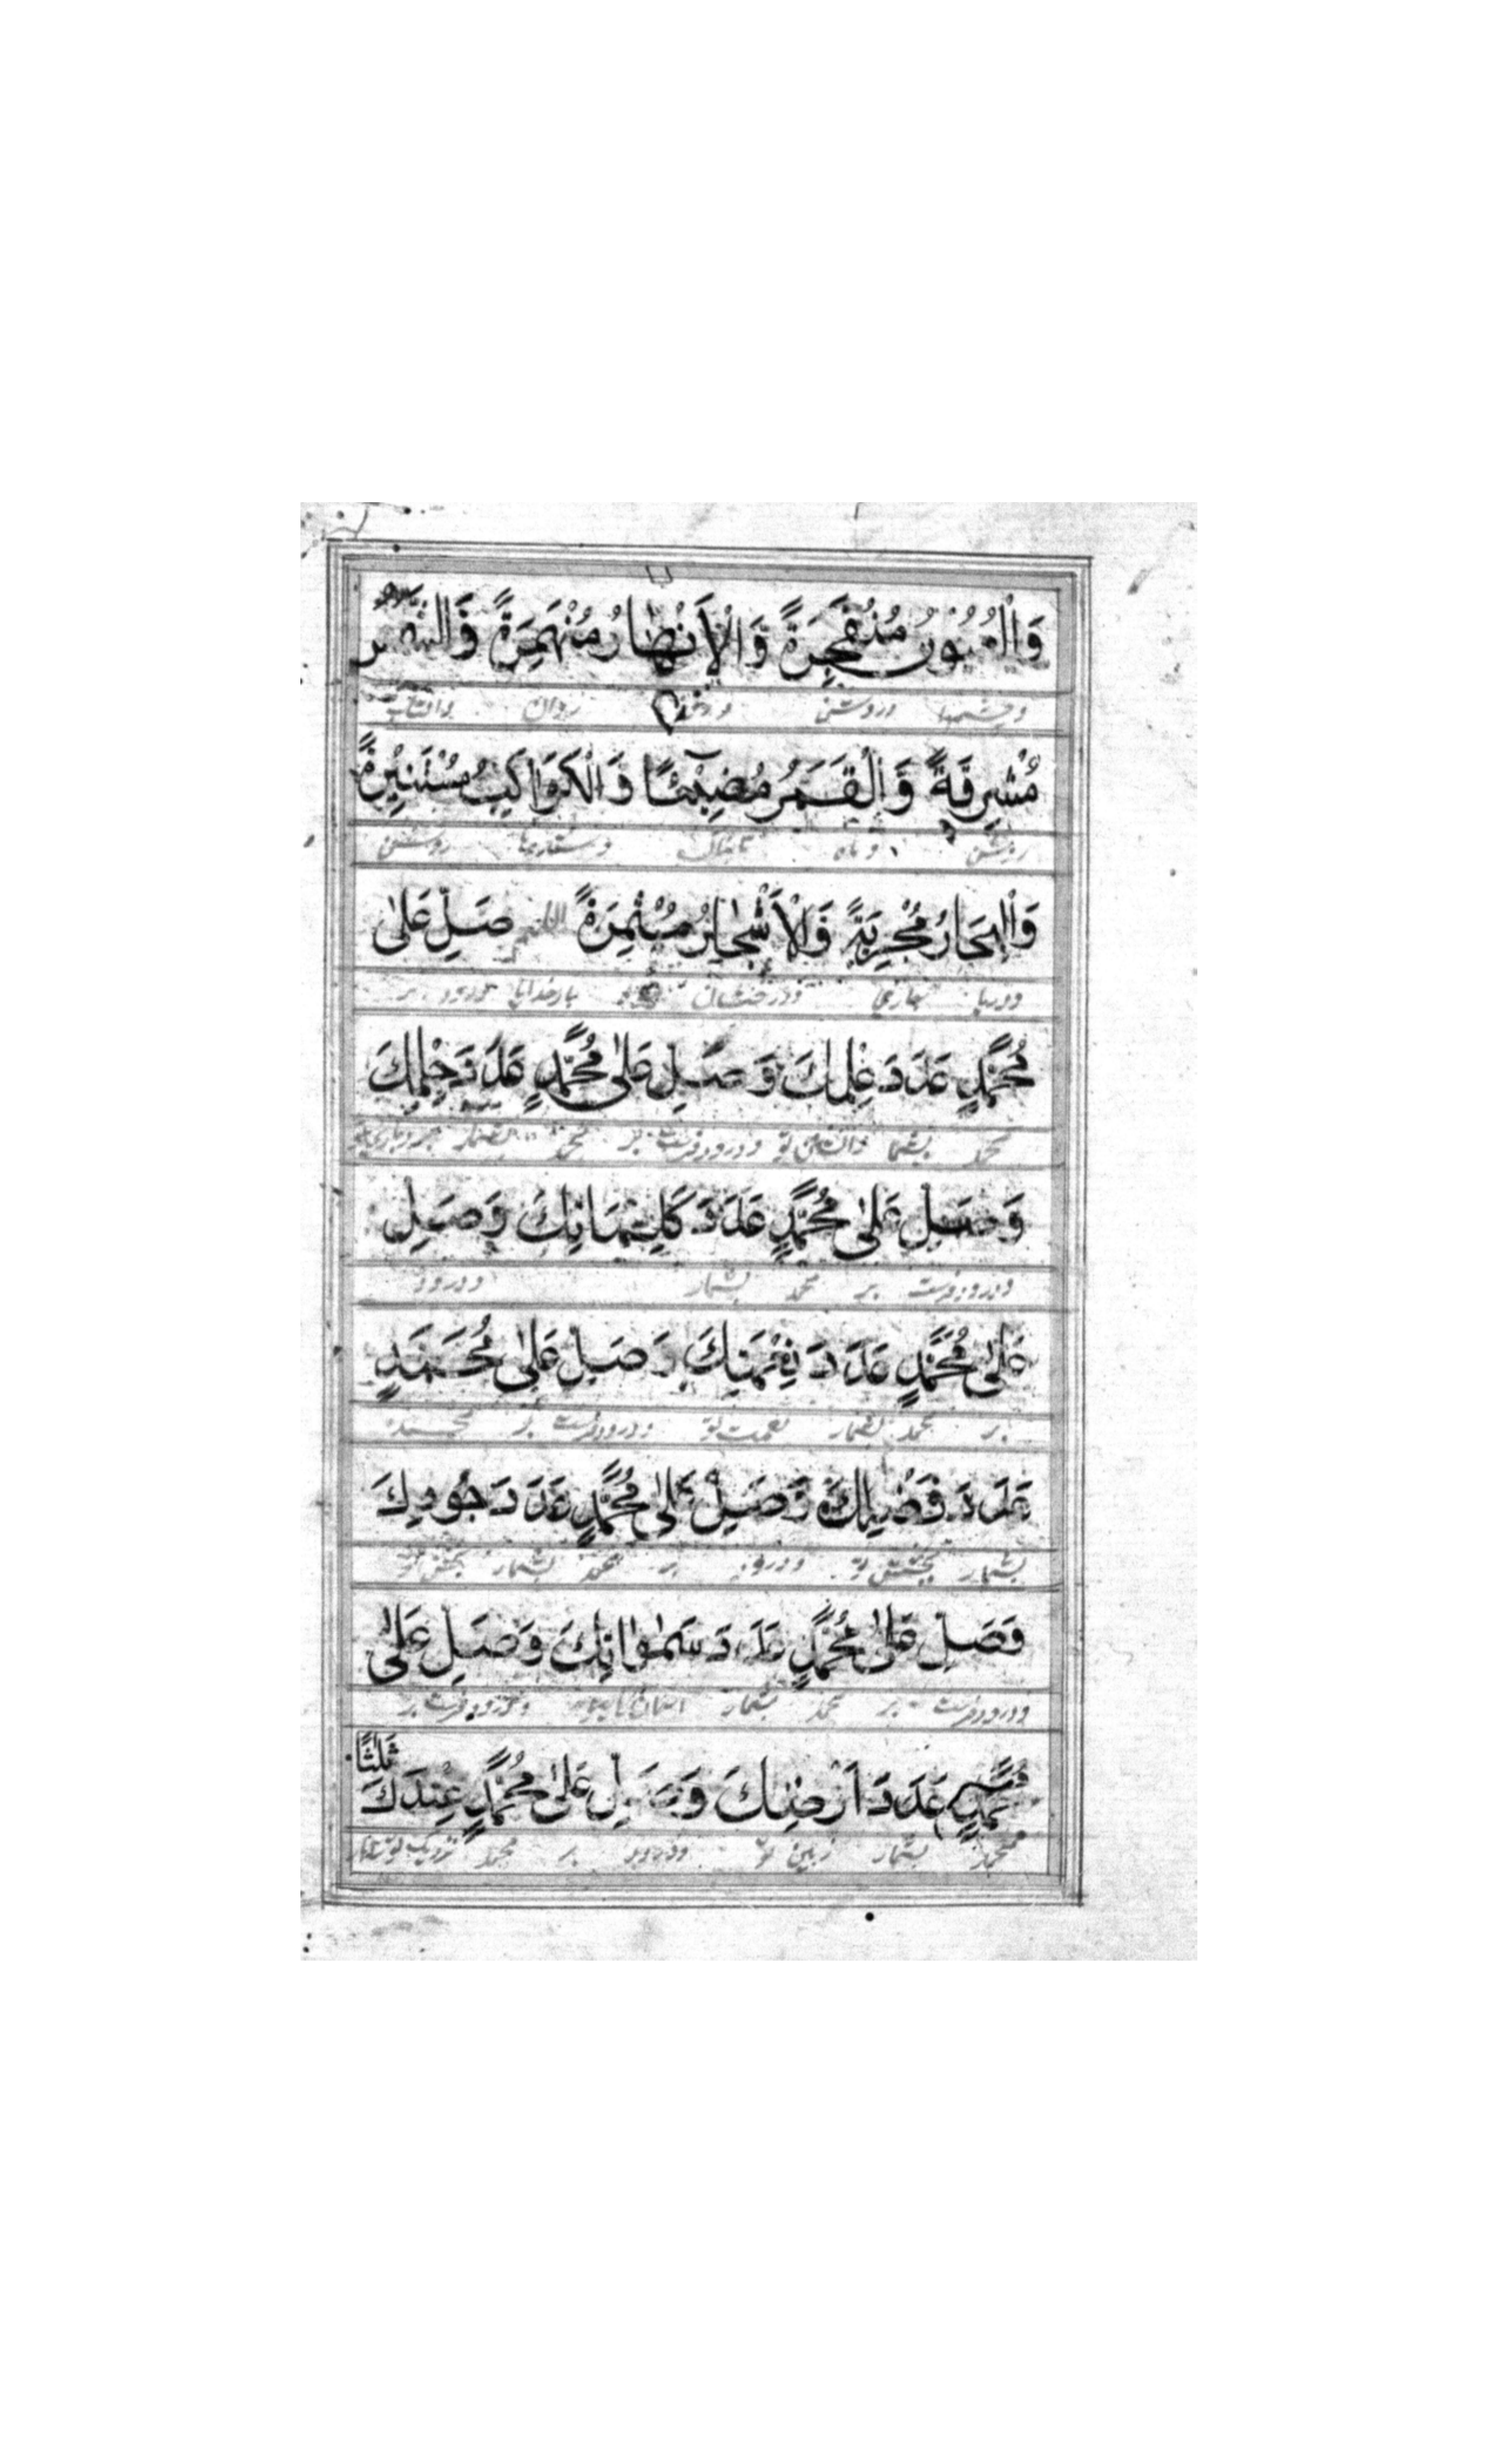 وَالْعُيُونُ مُنْفَجِرَةً وَالْأَنْهَارُ مُنْهَمِرَةً وَالشَّمْسُ
وچشمها وروشن روان وافتاب
مُشْرِقَةً وَالْقَمَرُ مُضِيْئًا وَالْكَوَاكِبُ مُسْتَنِيْرَةً
روشن و ماه تابناک وستارها روشن
وَالْبِحَارُ مُجْرِيَةً وَالْأَشْجَارُ مُثْمِرَةً اللهم صَلِّ عَلٰى
ودریا جاری ودرختان بارخدایا درود بر
مُحَمَّدٍ عَدَدَ عِلْمِكَ وَصَلِّ عَلٰى مُحَمَّدٍ عَدَدَ حِلْمِكَ
محمد بشمار ودرود فرست بر محمد بشمار
وَصَلِّ عَلٰى مُحَمَّدٍ عَدَدَ كَلِمَاتِكَ وَصَلِّ
ودرود فرست بر محمد بشمار ودرود
عَلٰى مُحَمَّدٍ عَدَدَ نِعْمَتِكَ وَصَلِّ عَلٰى مُحَمَّدٍ
بر محمد بشمار نعمت تو ودرود فرست بر محمد
عَدَدَ فَضْلِكَ وَصَلِّ عَلٰى مُحَمَّدٍ عَدَدَ جُودِكَ
بشمار بخشش تو ودرود بر محمد بشمار بخشش تو
وَصَلِّ عَلٰى مُحَمَّدٍ عَدَدَ سَمٰوَاتِكَ وَصَلِّ عَلٰى
ودرود فرست بر محمد بشمار اسمان ودرود فرست بر
مُحَمَّدٍ عَدَدَ اَرْضِكَ وَصَلِّ عَلٰى مُحَمَّدٍ عِنْدَكَ ثَلٰثًا
محمد بشمار زمین تو ودرود بر محمد نزدیک تو